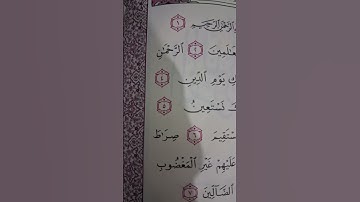 الرَّحْمٰنِ الرَّحِيمِ ١
عَالَمِينَ ٢ الرَّحْمٰنِ
كِ يَوْمِ الدِّينِ ٤
كَ نَسْتَعِينُ ٥
سْتَقِيمَ ٦ صِرَاطَ
عَلَيْهِمْ غَيْرِ الْمَغْضُوبِ
الضَّالِّينَ ٧